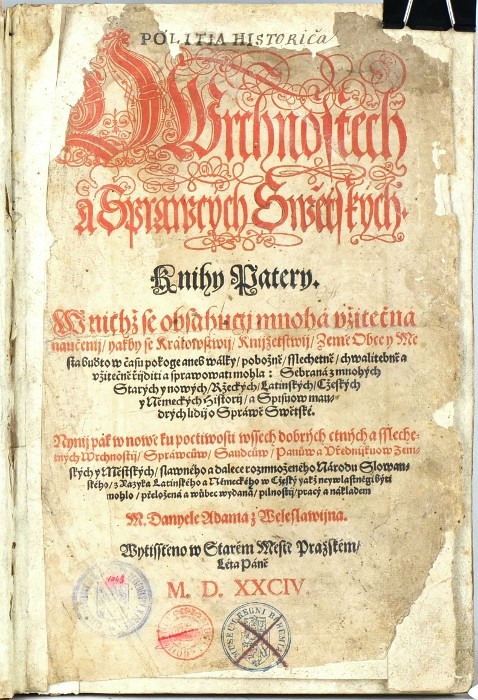 POLITIA HISTORICA
O Wrchnostech
a Spráwcých Swětských.
Knihy Patery.
W nichž se obsahugj mnohá vžitečná
naučenij / yakby se Králowstwij / Knijžetstwij / Země Obce y Mě
sta buďto w času pokoge aneb wálky / pobožně / sslechetně / chwalitebně a
vžitečně řijditi a sprawowati mohla: Sebraná z mnohých
Starých y nowých / Ržeckých / Latinských / Cžeských
y Německých Historij / a Spisuow mau-
drých lidij o Spráwě Swětské.
Nynij pák w nowě ku poctiwosti wssech dobrých ctných a ssleche-
tných Wrchnostij / Spráwcůw / Saudcůw / Panůw a Vředlnijkuow Zem-
ských y Městských / slawného a dalece rozmnoženého Národu Slowan-
ského / z Jazyka Latinského a Německého w Cžeský yakž neywlastněgi býti
mohlo / přeložená a wůbec wydaná / pilnostij / pracý a nákladem
M. Danyele Adama z Weleslawijna.
Wytisstěno w Starém Městě Pražském /
Léta Páně
M. D. XXCIV.
MUSEUM REGNI BOHEMIAE